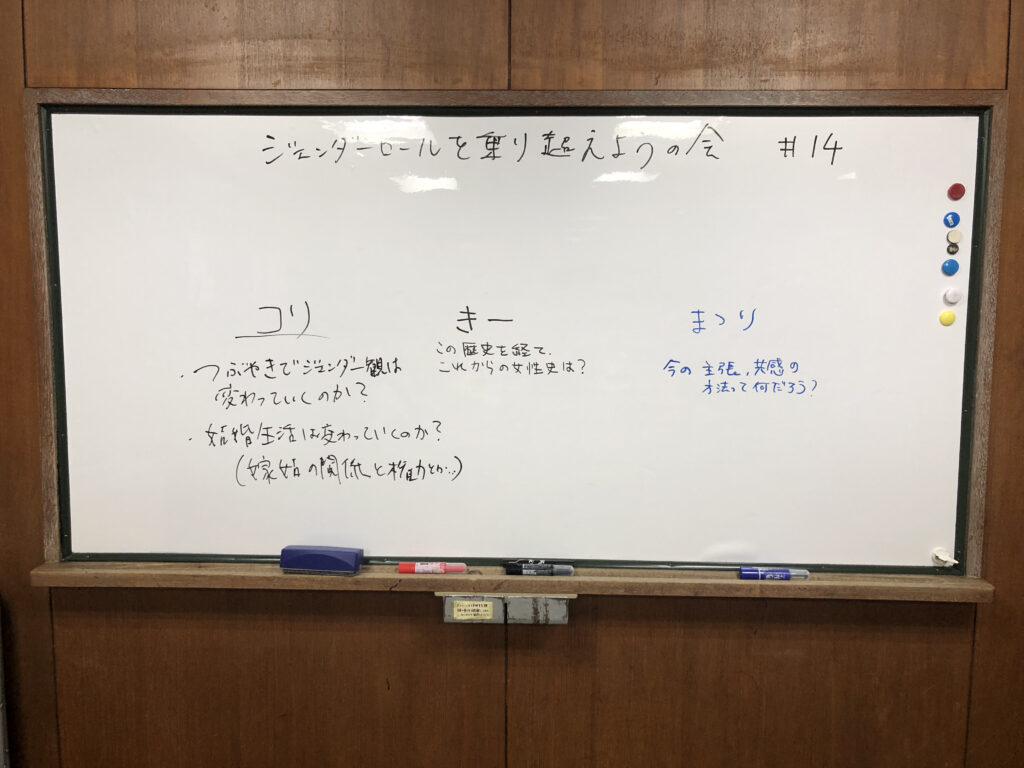 ジェンダーロールを乗り超えようの会 #14
コリ
・つぶやきでジェンダー観は
変わっていくのか?
・結婚生活は変わっていくのか?
(嫁姑の関係と権力とか…)
きー
この歴史を経て、
これからの女性史は?
まつり
今の主張、共感の
方法って何だろう?